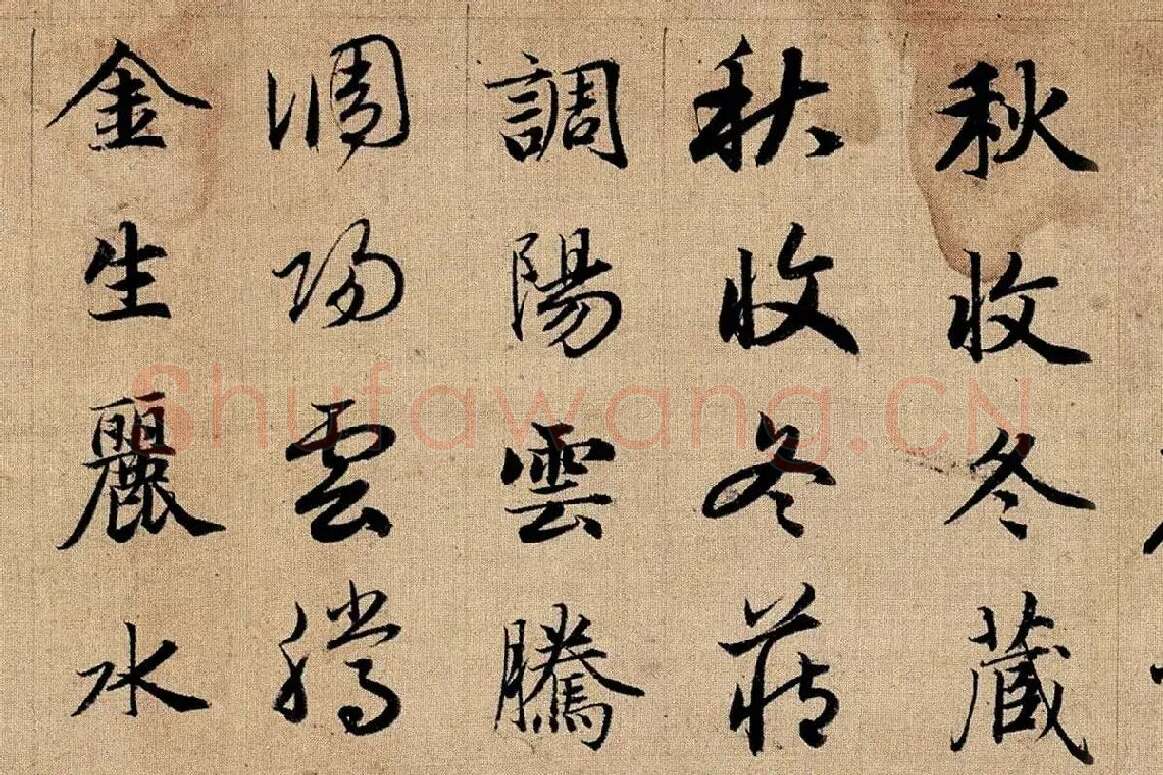 秋收冬蔵
秋收冬蔵
調陽雲騰
調陽雲騰
金生麗水
Shufawang.CN